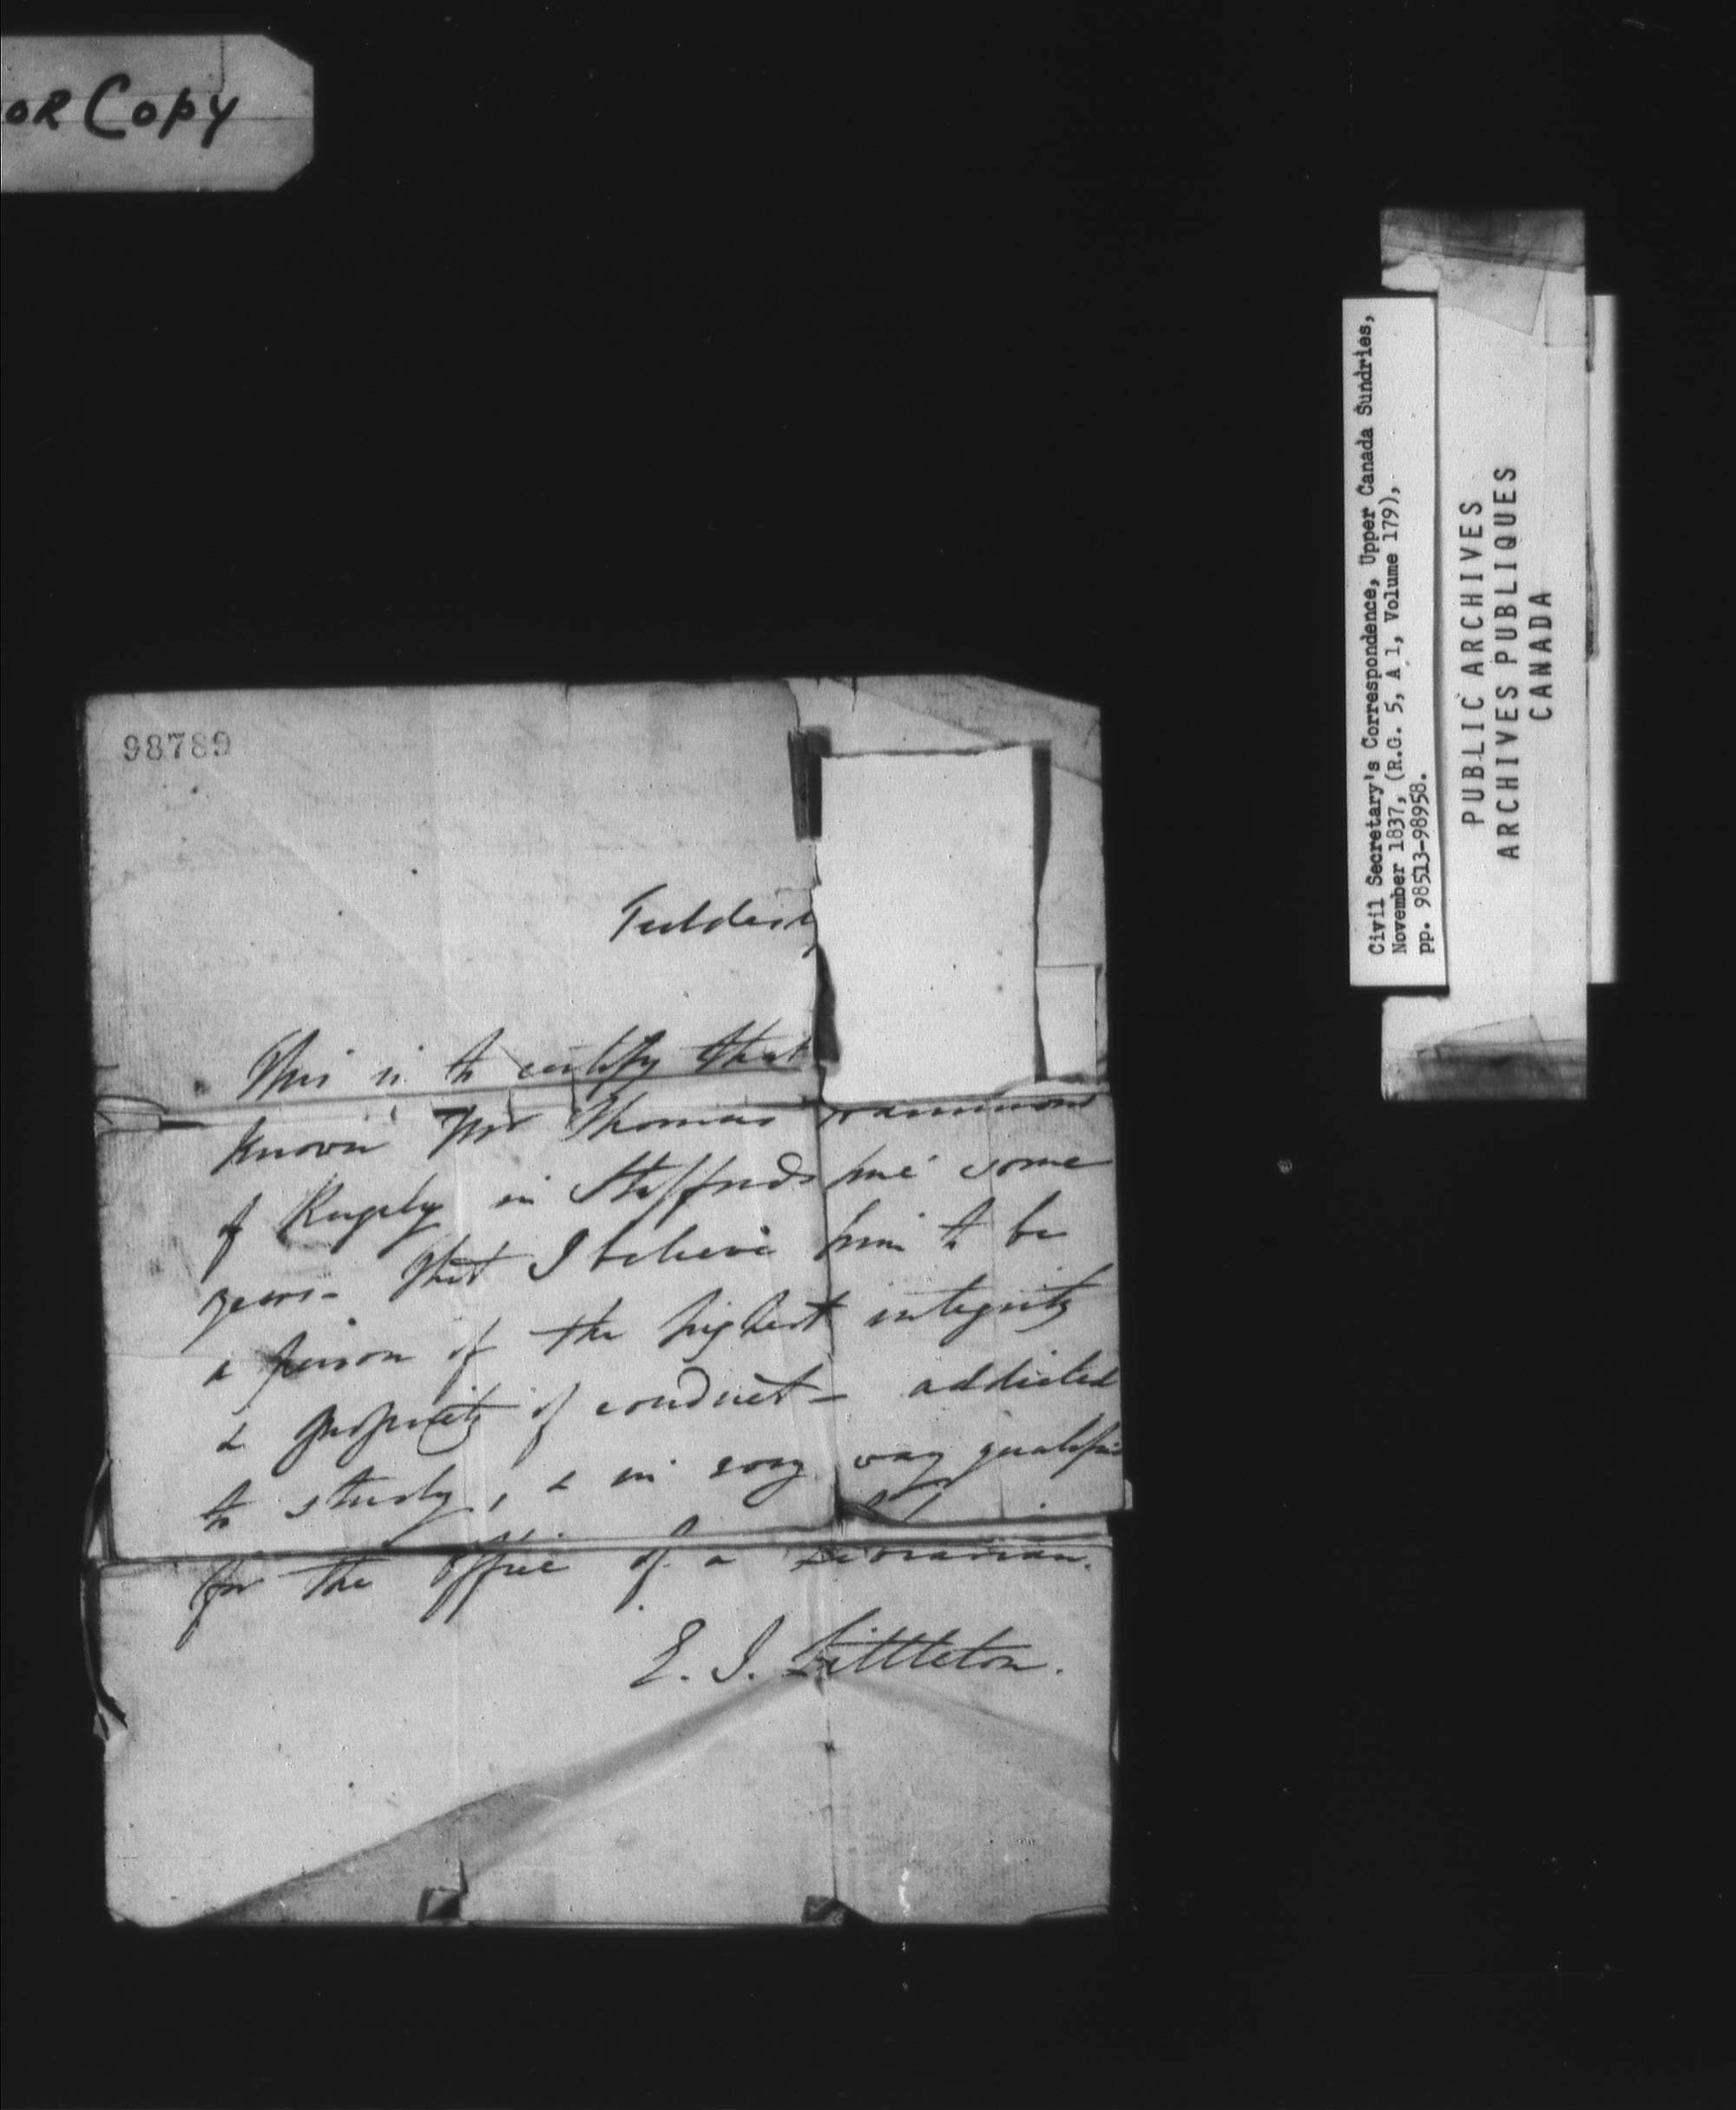 OR Copy
98789
This is to certify that
known Mr Thomas Hammond
of Rugely in Staffordshire some
years - That I believe him to be
a person of the highest integrity
& propriety of conduct - addicted
to study, & in every way qualified
for the office of a Librarian.
E. J. Littleton.
Civil Secretary's Correspondence, Upper Canada Sundries,
November 1837, (R.G. 5, A 1, Volume 179),
pp. 98513-98958.
PUBLIC ARCHIVES
ARCHIVES PUBLIQUES
CANADA